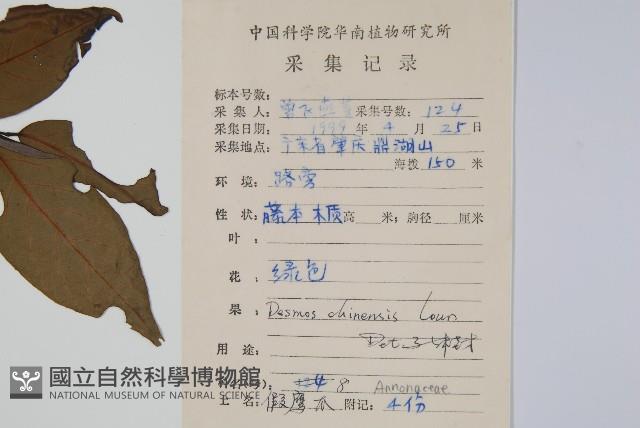 中国科学院华南植物研究所
采集记录
标本号数：
采集人：曾飞燕 采集号数：124
采集日期：1999年4月25日
采集地点：广东省肇庆鼎湖山
海拨150米
环境：路旁
性状：藤本 木质 高 米；胸径 厘米
叶：
花：绿色
果：
Desmos chinensis Lour
Det.
用途：
8 Annonaceae
土名：假鹰爪 附记：4份
國立自然科學博物館
NATIONAL MUSEUM OF NATURAL SCIENCE